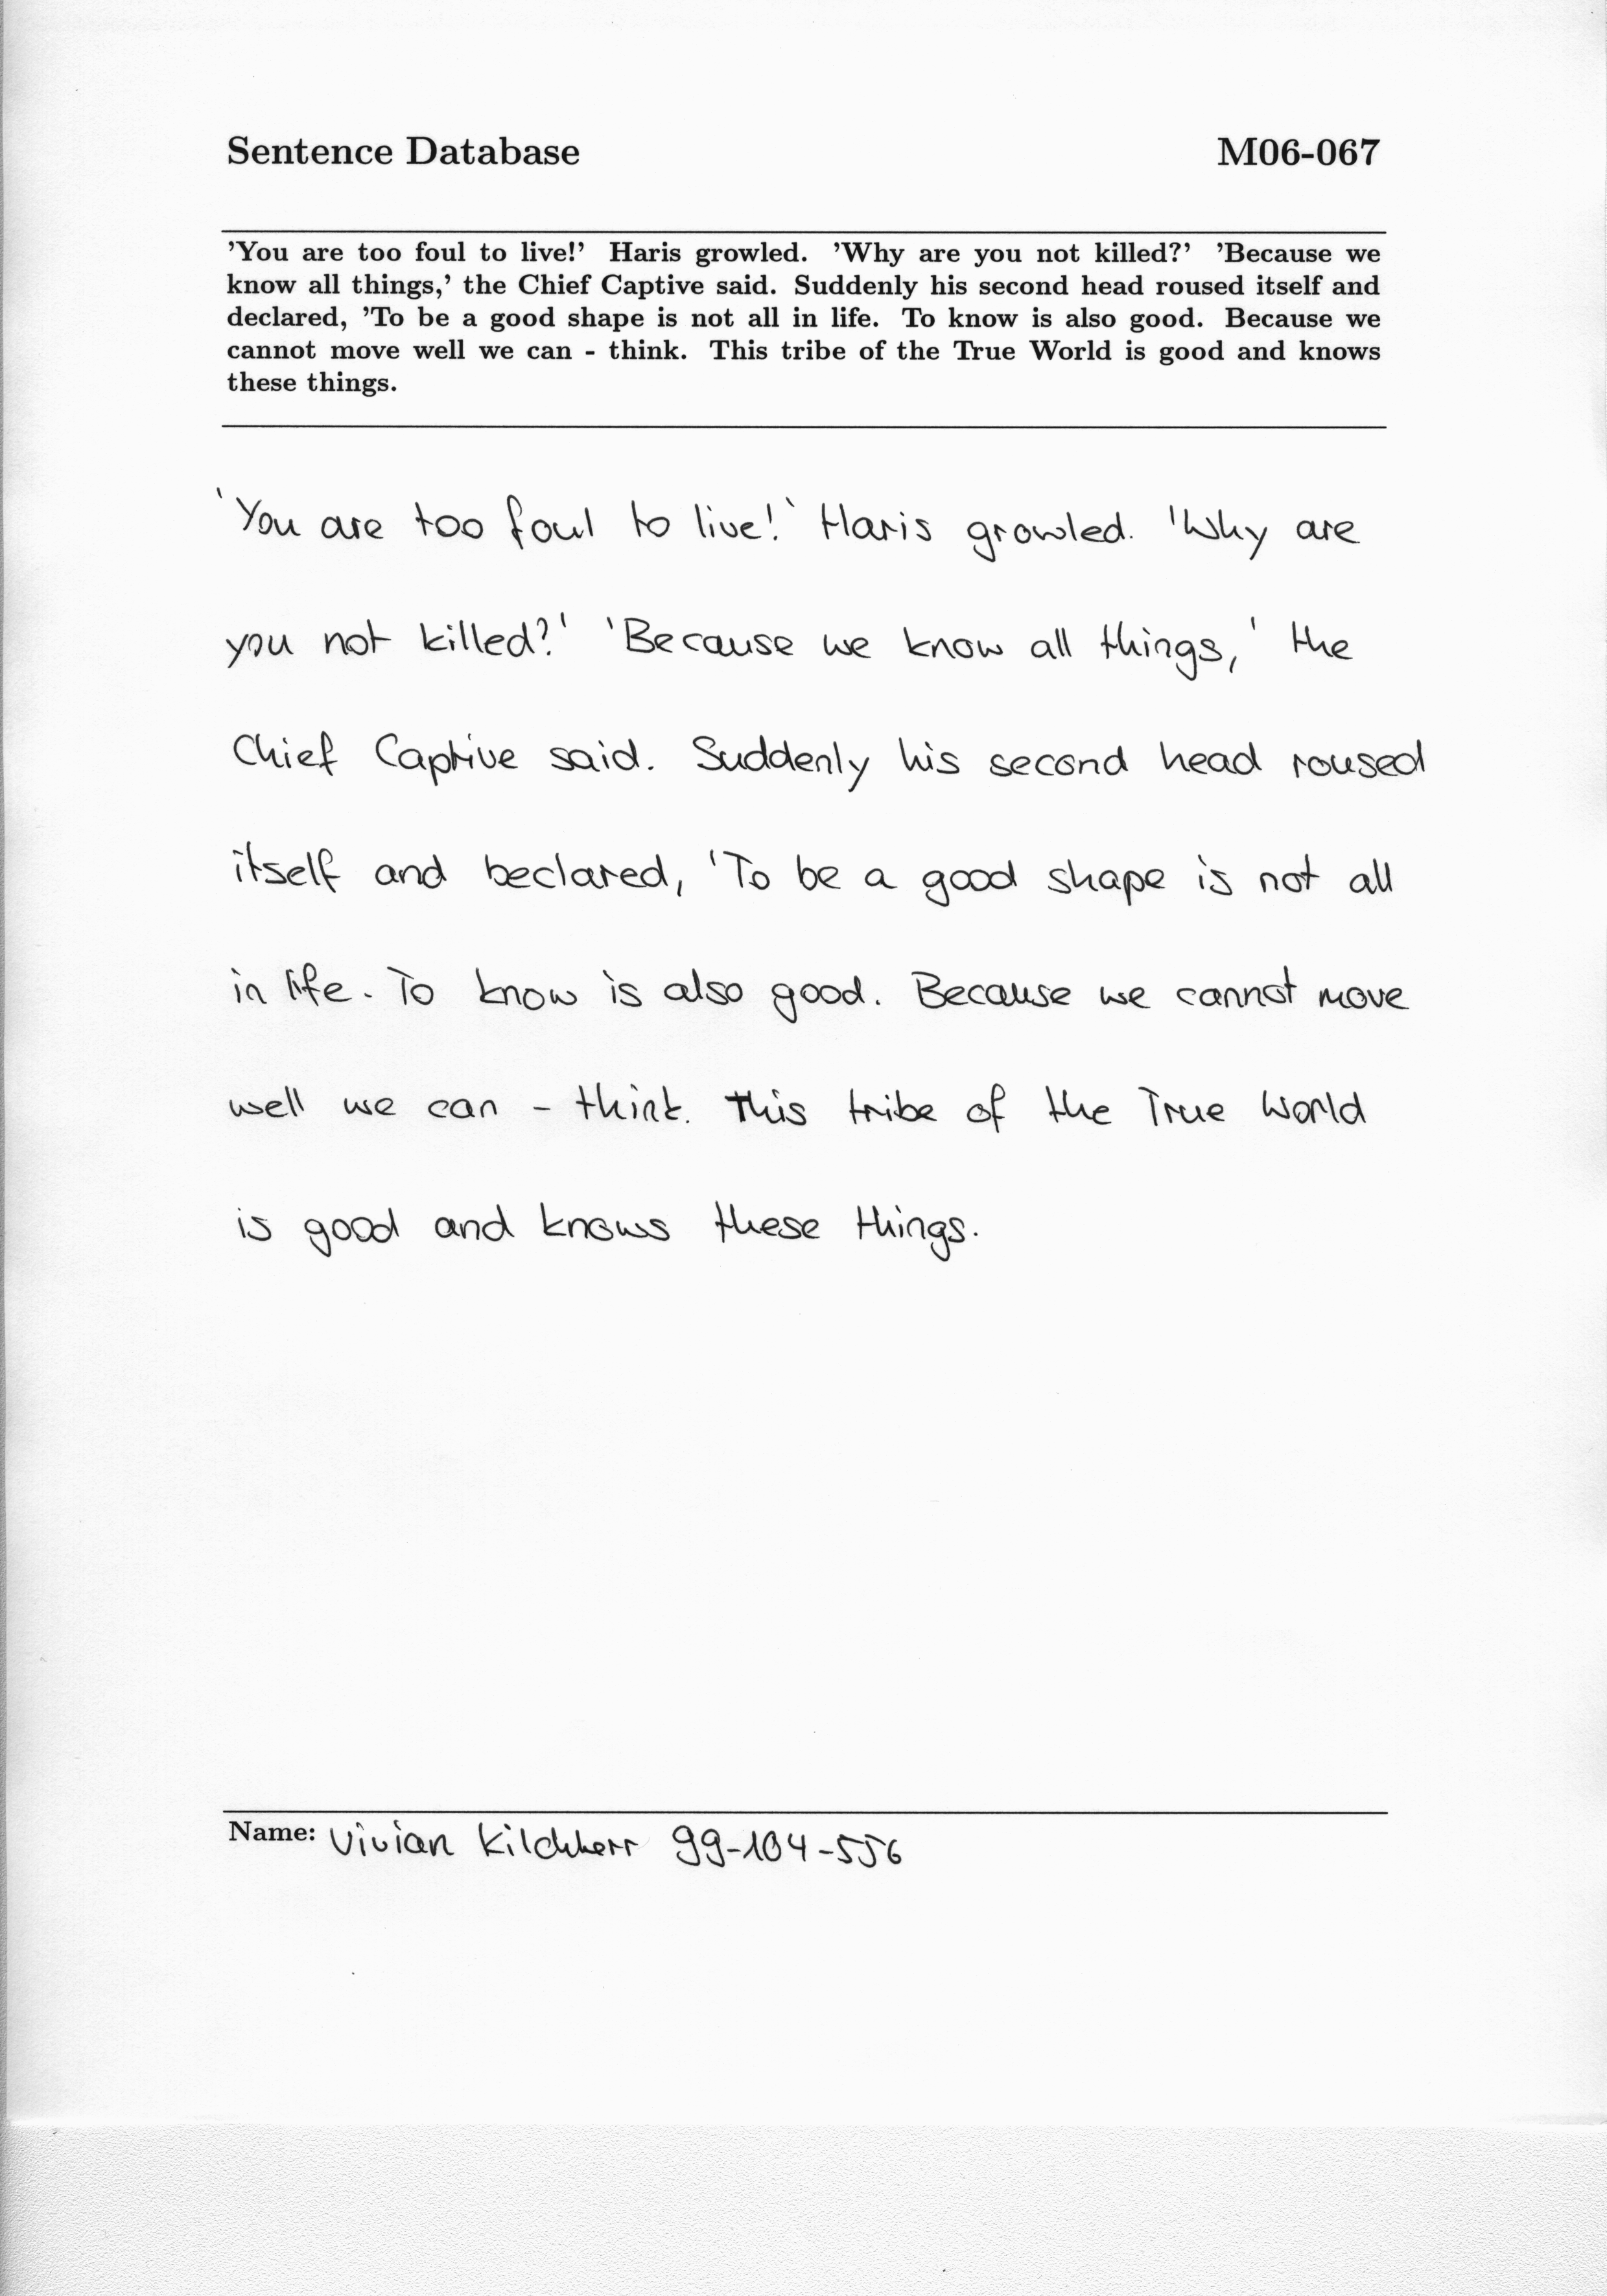 Sentence Database M06-067
’You are too foul to live!’ Haris growled. ’Why are you not killed?’ ’Because we
know all things,’ the Chief Captive said. Suddenly his second head roused itself and
declared, ’To be a good shape is not all in life. To know is also good. Because we
cannot move well we can - think. This tribe of the True World is good and knows
these things.
'You are too foul to live!` Haris growled. 'Why are
you not killed?' 'Because we know all things,' the
Chief Captive said. Suddenly his second head roused
itself and beclared, 'To be a good shape is not all
in life. To know is also good. Because we cannot move
well we can - think. This tribe of the True World
is good and knows these things.
Name: Vivian Kilchherr 99-104-556